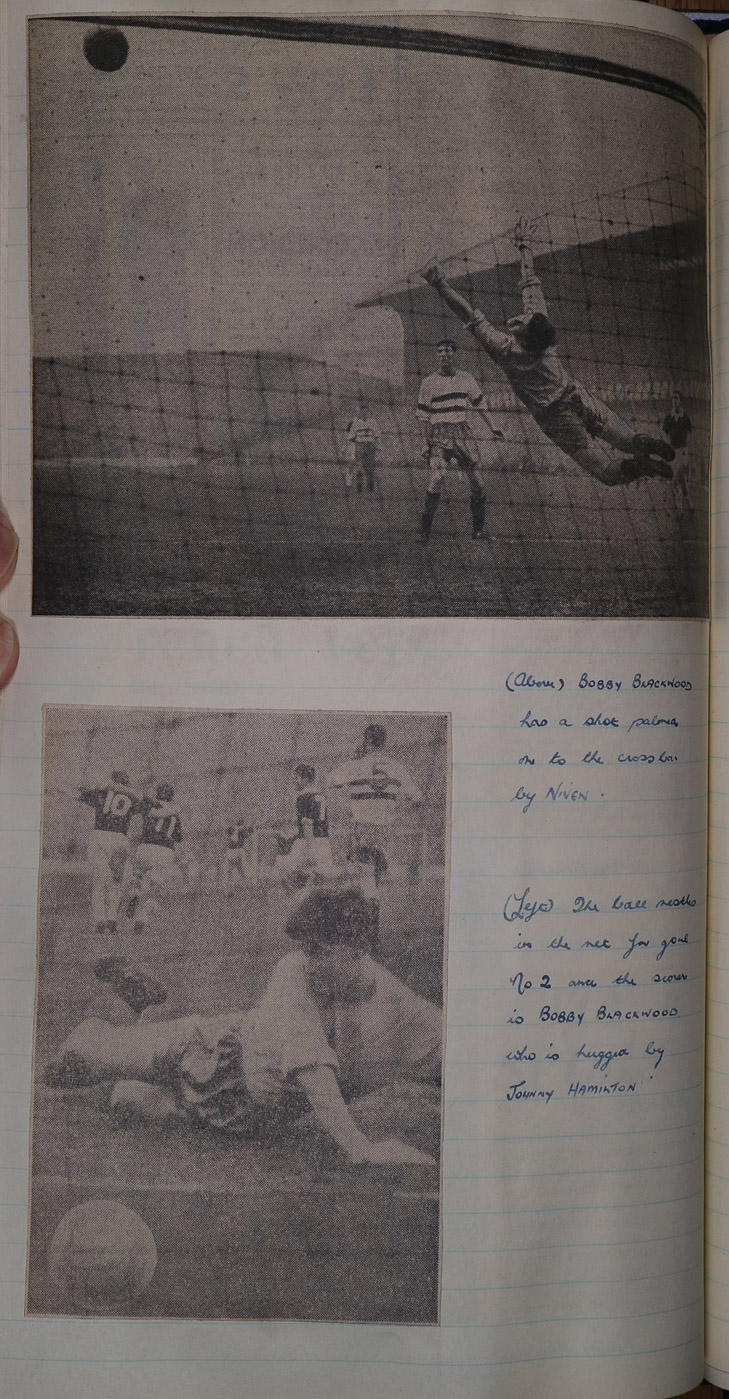 10
11
7
(Above) BOBBY BLACKWOOD
has a shot palmed
on to the crossbar
by NIVEN.
(Left) The ball nestles
in the net for goal
No 2 and the scorer
is BOBBY BLACKWOOD
who is hugged by
JOHNNY HAMILTON